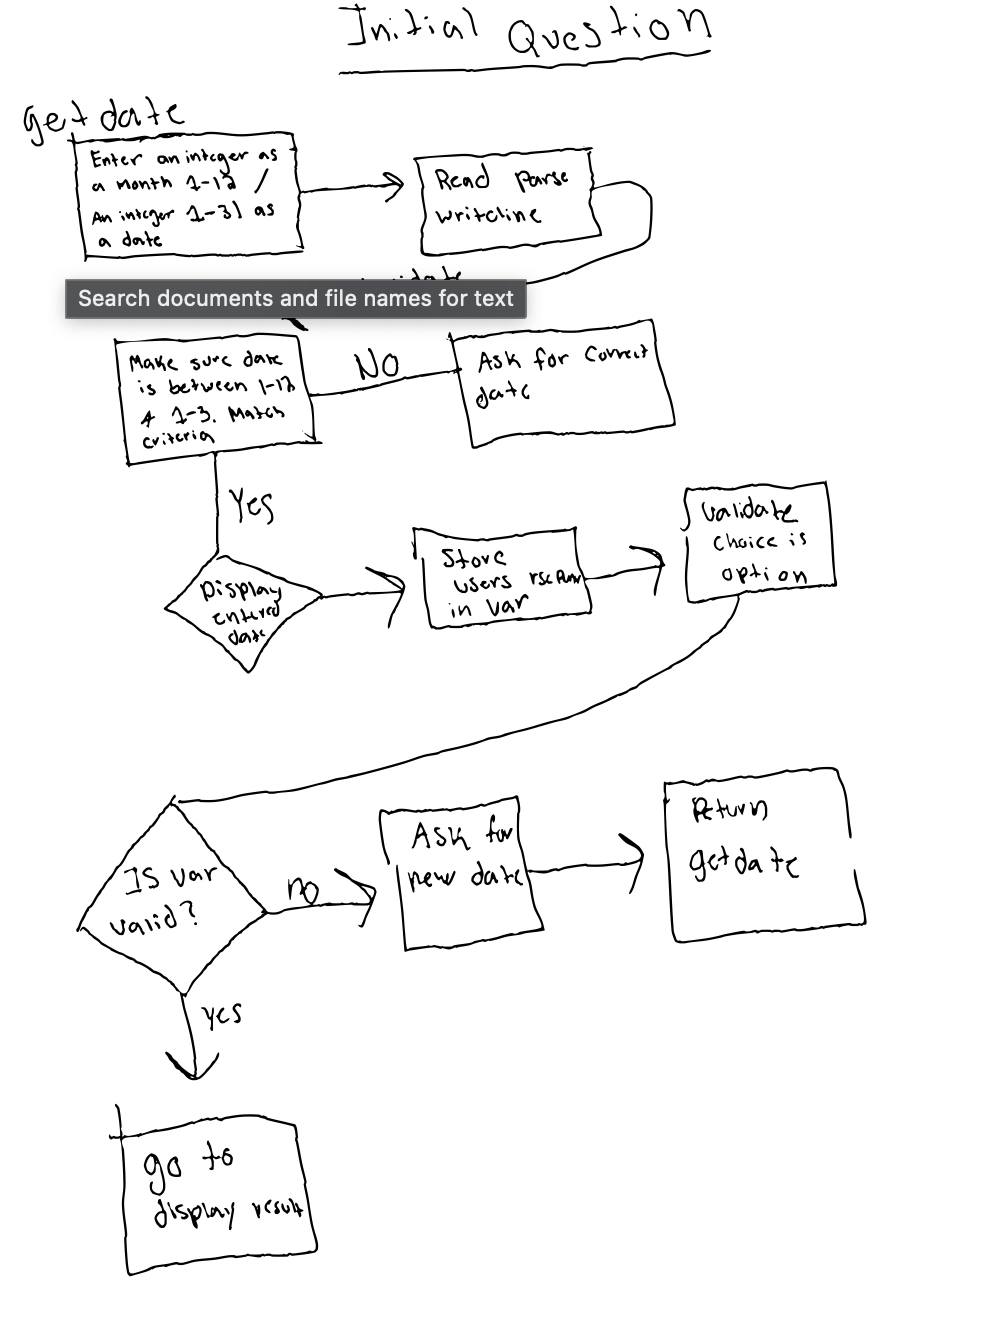 Initial Question
get date
Enter an integer as
a month 1-12 /
An integer 1-31 as
a date
Read Parse
writeline
Search documents and file names for text
Make sure date
is between 1-12
& 1-3. Match
criteria
NO
Ask for correct
date
Yes
Display
entered
date
Store
users
in var
validate
choice is
option
Is var
valid?
no
Ask for
new date
Return
getdate
yes
go to
display result